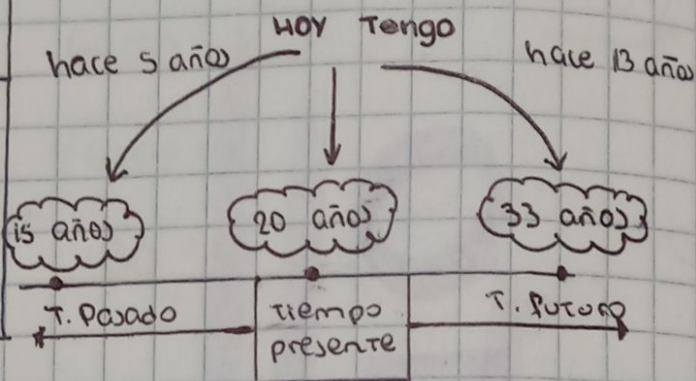 HOY Tengo
hace 5 años
hace 13 años
15 años
20 años
33 años
T. Pasado
tiempo
presente
T. Futuro